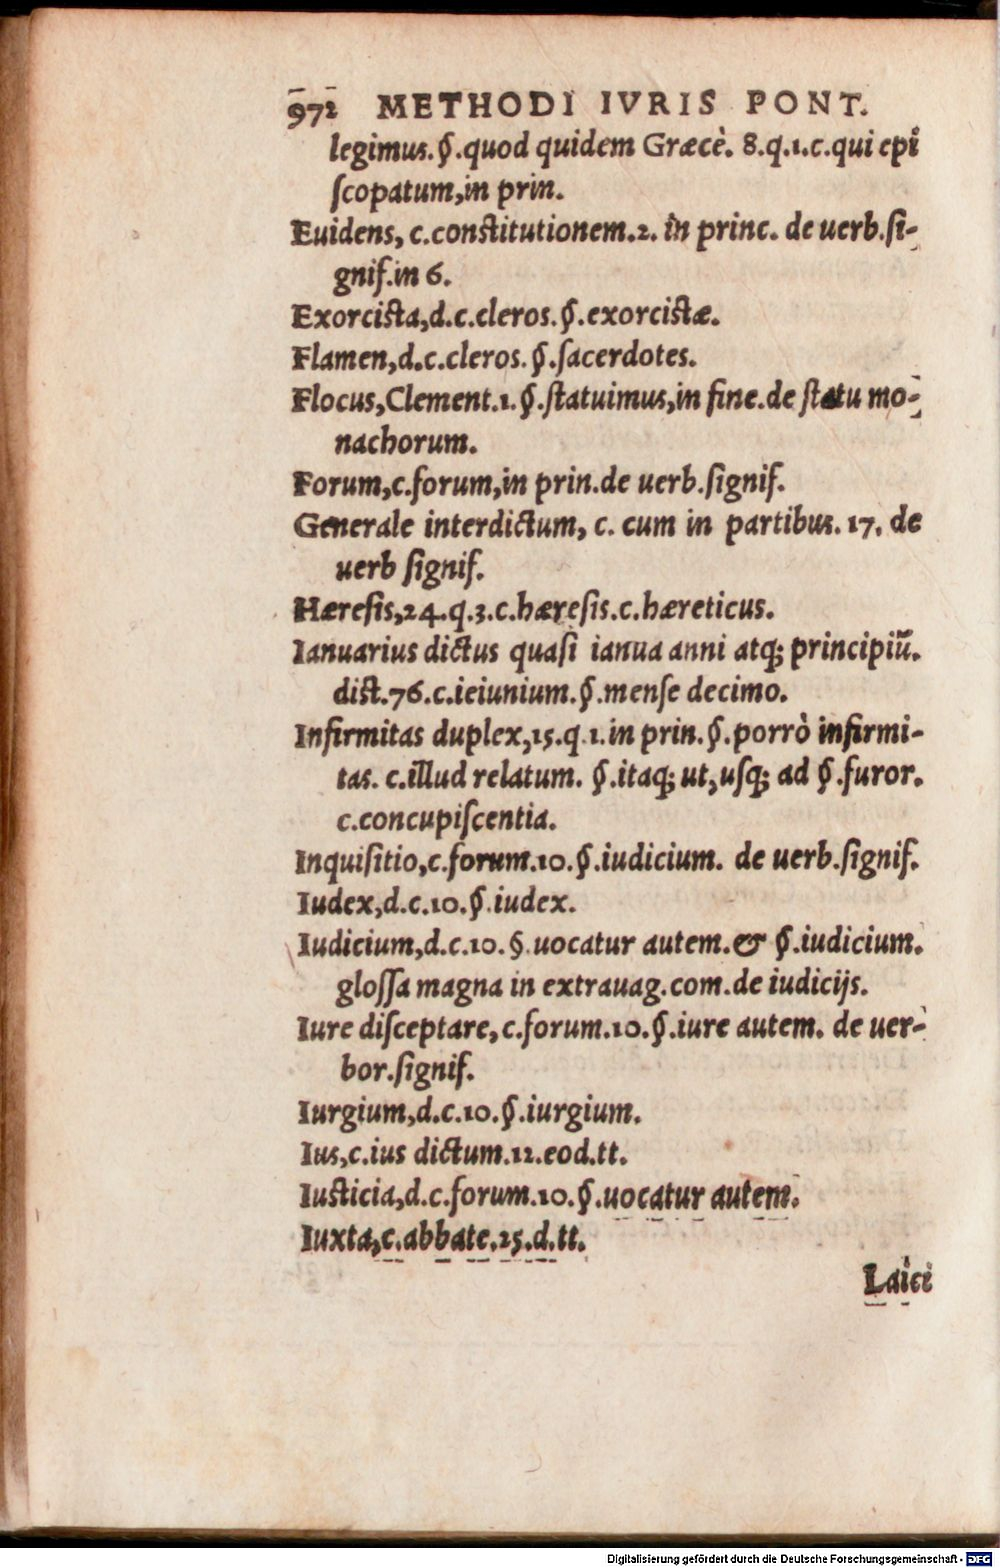 972 METHODI IVRIS PONT.
legimus.§.quod quidem Græcè. 8.q.1.c.qui epi
ſcopatum,in prin.
Euidens, c.conſtitutionem.2. in princ. de uerb.ſi-
gnif.in 6.
Exorciſta,d.c.cleros.§.exorciſtæ.
Flamen,d.c.cleros.§.ſacerdotes.
Flocus,Clement.1.§.ſtatuimus,in fine.de ſtatu mo-
nachorum.
Forum,c.forum,in prin.de uerb.ſignif.
Generale interdictum, c. cum in partibus. 17. de
uerb ſignif.
Hæreſis,24.q.3.c.hæreſis.c.hæreticus.
Ianuarius dictus quaſi ianua anni atq; principiū.
diſt.76.c.ieiunium.§.menſe decimo.
Infirmitas duplex,15.q.1.in prin.§.porrò infirmi-
tas. c.illud relatum. §.itaq; ut,uſq; ad §.furor.
c.concupiſcentia.
Inquiſitio,c.forum.10.§.iudicium. de uerb.ſignif.
Iudex,d.c.10.§.iudex.
Iudicium,d.c.10.§.uocatur autem.& §.iudicium.
gloſſa magna in extrauag.com.de iudicijs.
Iure diſceptare,c.forum.10.§.iure autem. de uer-
bor.ſignif.
Iurgium,d.c.10.§.iurgium.
Ius,c.ius dictum.12.eod.tt.
Iuſticia,d.c.forum.10.§.uocatur autem.
Iuxta,c.abbate.25.d.tt.
Laici
Digitalisierung gefördert durch die Deutsche Forschungsgemeinschaft - DFG